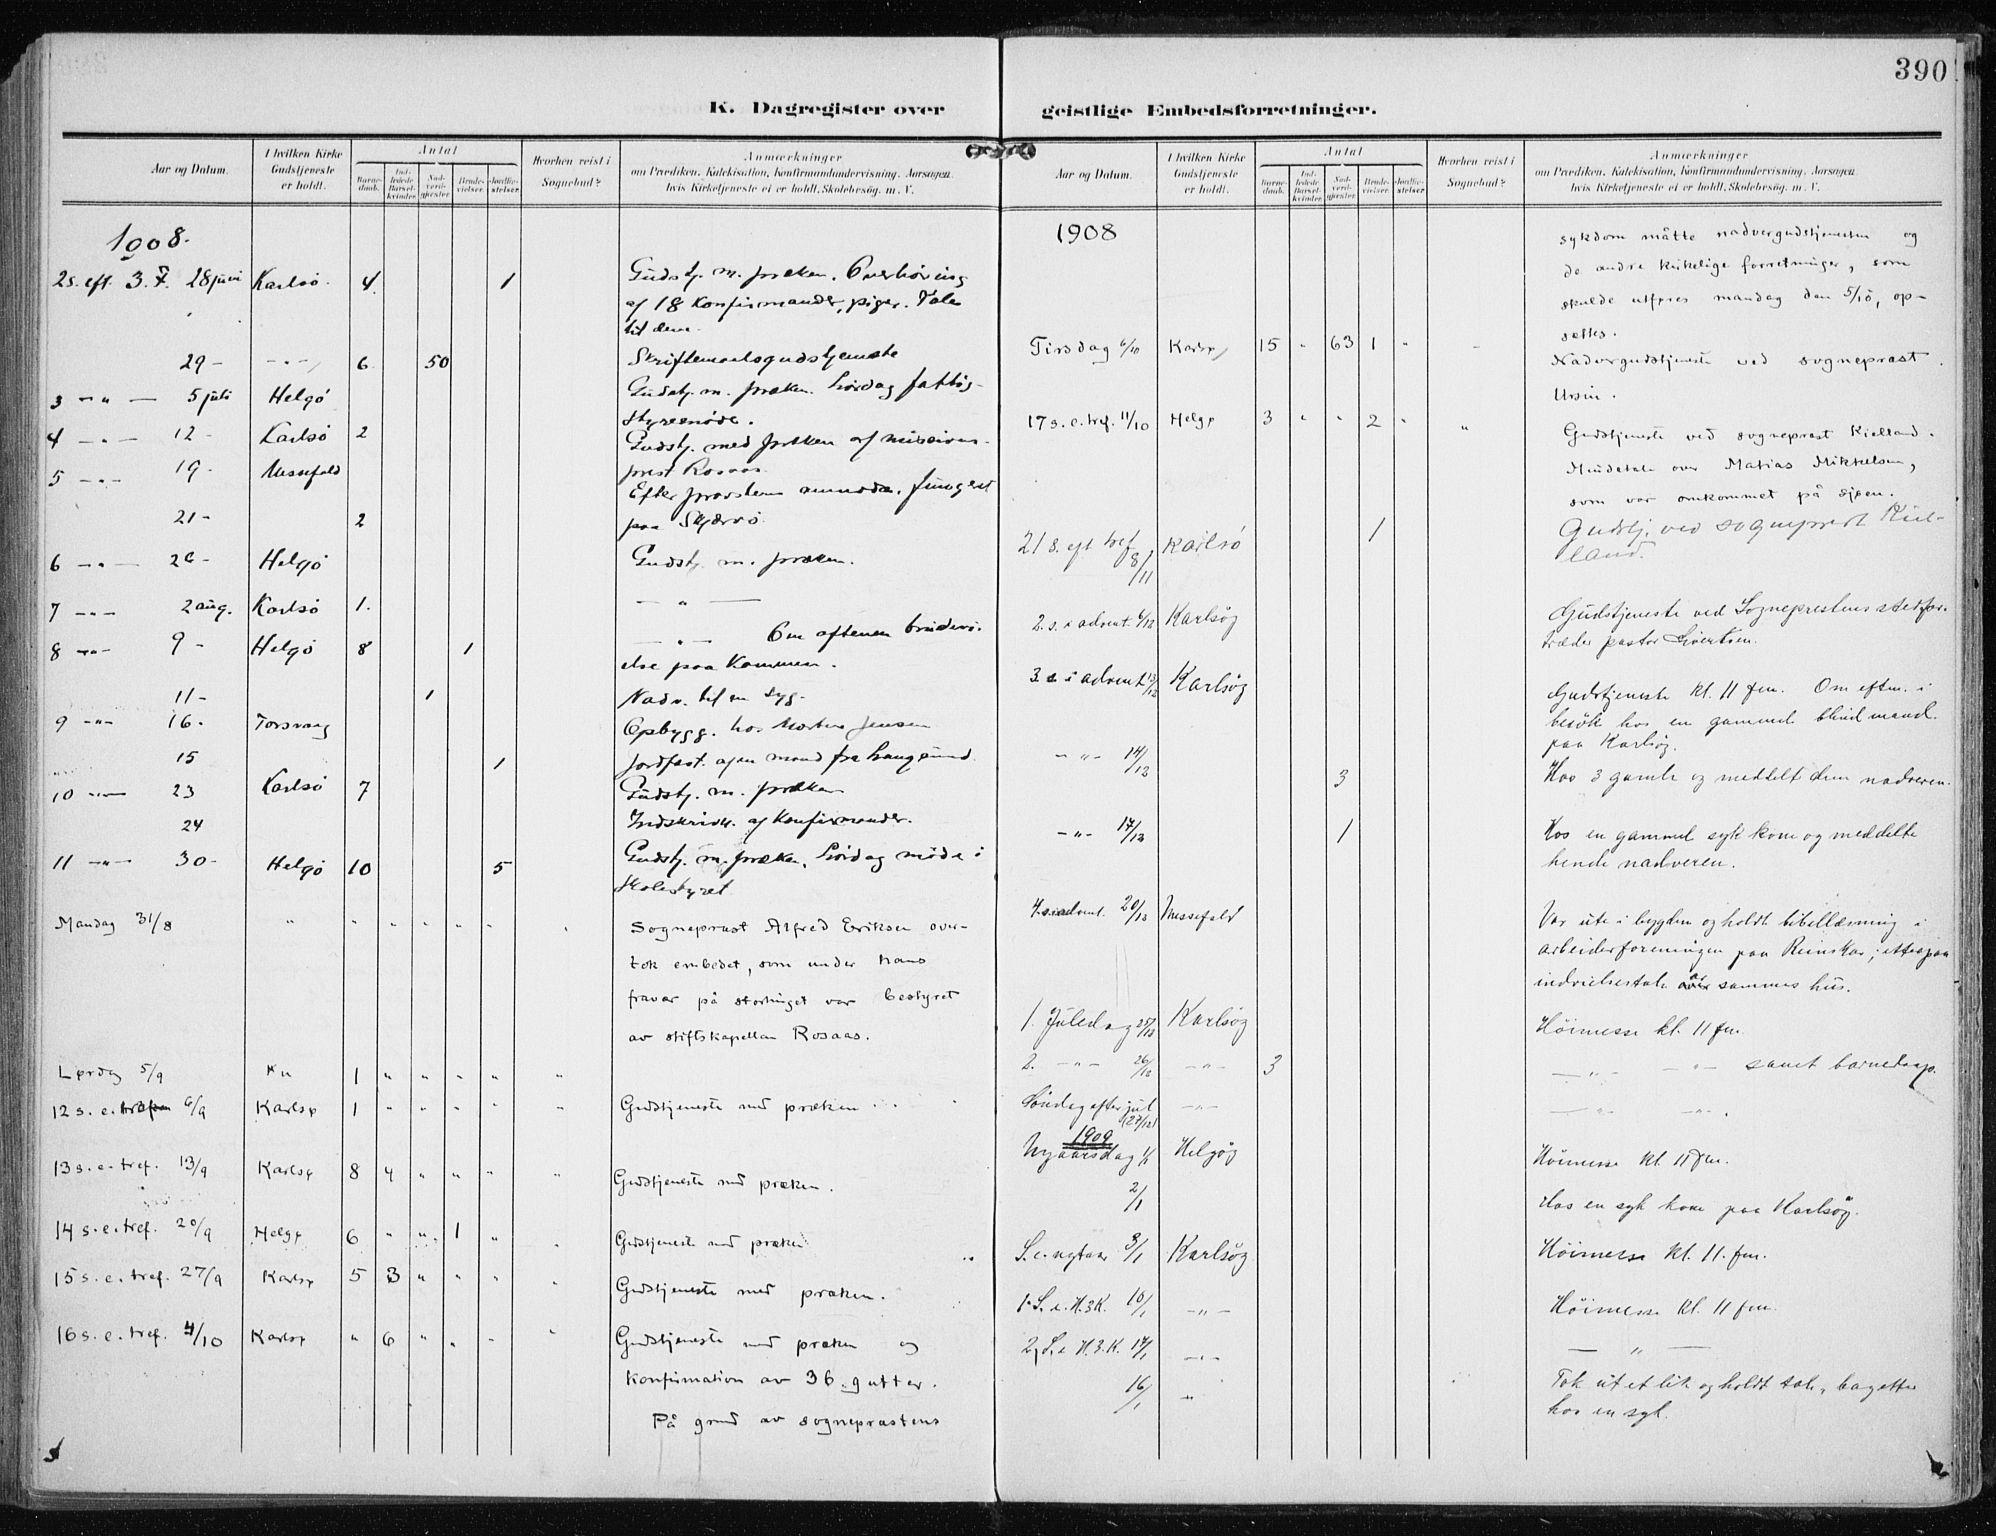 390
K. Dagregister over geistlige Embedsforretninger.
Aar og Datum.
I hvilken Kirke Gudstjeneste er holdt.
Antal
Barne-daab.
Ind-ledede Barsel-kvinder.
Nad-verd-gjæster.
Brude-vielser.
Jordfæ-stelser.
Hvorhen reist i Sognebud?
Anmærkninger
om Prædiken, Katekisation, Konfirmandundervisning, Aarsagen,
hvis Kirketjeneste ei er holdt, Skolebesøg, m. V.
1908.
2 s. eft. 3. F. 28 juni Karlsö. 4 1 Gudstj. m. præken. Overhöring
af 18 konfirmander, piger. Tale
til dem.
29 - - " - 6 50 Skriftemaalsgudstjeneste
3 - " - 5 juli Helgö Gudstj. m. præken. Lördag fattig-
styremöde.
4 - " - 12 - Karlsö 2 Gudstj. med præken af missions-
prest Rosaas.
5 - " - 19 - Messefold Efter provstens anmodn. fungert
21 - 2 paa Skjærvö
6 - " - 26 - Helgö Gudstj. m. præken.
7 - " - 2 aug. Karlsö 1. — " —
8 - " - 9 - Helgö 8 1 — " — Om aftenen brudevi-
else paa Kammen.
11 - 1 Nadv. til en syg.
9 - " - 16 - Torsvaag Opbygg. hos Morten Jensen
15 1 Jordfæst. af en mand fra Langsund.
10 - " - 23 Karlsö 7 Gudstj. m. præken
24 Indskrivn. af konfirmander.
11 - " - 30 - Helgö 10 5 Gudstj. m. præken. Lördag möde i
skolestyret
Mandag 31/8 " " " " " " " Sogneprest Alfred Eriksen over-
tok embedet, som under hans
fravær på stortinget var bestyret
av stiftskapellan Rosaas.
Lørdag 5/9 1 " " " " "
12 s. e. 6/9 Karlsø 1 " " " " " Gudstjeneste med præken
13 s. e. tref. 13/9 Karlsø 8 4 " " " " Gudstjeneste med præken.
14 s. e. tref. 20/9 Helgø 6 " " 1 " " Gudstjeneste med præken
15 s. e. tref. 27/9 Karlsø 5 3 " " " " Gudstjeneste med præken.
16 s. e. tref. 4/10 Karlsø " 6 " " " " Gudstjeneste med præken og
konfirmation av 36 gutter.
På grund av sogneprestens
Aar og Datum.
I hvilken Kirke Gudstjeneste er holdt.
Antal
Barne-daab.
Ind-ledede Barsel-kvinder.
Nad-verd-gjæster.
Brude-vielser.
Jordfæ-stelser.
Hvorhen reist i Sognebud?
Anmærkninger
om Prædiken, Katekisation, Konfirmandundervisning, Aarsagen,
hvis Kirketjeneste ei er holdt, Skolebesøg, m. V.
1908
sykdom måtte nadvergudstjenesten og
de andre kirkelige forretninger, som
skulde utføres mandag den 5/10, op-
sættes.
Tirsdag 6/10 Karlsø 15 " 63 1 " - Nadvergudstjeneste ved sogneprest
Ursin.
17 s. e. tref. 11/10 Helgø 3 " " 2 " " Gudstjeneste ved sogneprest Kielland.
Mindetale over Matias Mikkelsen,
som var omkommet på sjøen.
21 s. eft tref 8/11 Karlsö 1 Gudstj. ved sogneprest Kiel-
land.
2. s. i advent. 6/12 Karlsög Gudstjeneste ved Sogneprestens stedfor-
træder pastor Sivertsen.
3. s. i advent. 13/12 Karlsög Gudstjeneste kl. 11 fm. Om eftm. i
besök hos en gammel blind mand
paa Karlsög.
- " - 14/12 3 Hos 3 gamle og meddelt dem nadveren.
- " - 17/12 1 Hos en gammel syk kone og meddelte
hende nadveren.
4. s. i advent. 20/12 Messefold Var ute i bygden og holdt bibellæsning i
arbeiderforeningen paa Reinskar; ettepaa
indvielsestale av sammes hus.
1. Juledag 25/12 Karlsög Höimesse kl. 11 fm.
2. - " - 26/12 - " - 3 — " — - " - samt barnedaap.
Söndag efter jul (27/12) - " - — " — - " - .
1909
Nyaarsdag 1/1 Helgög Höimesse kl. 11 fm.
2/1 Hos en syk kone paa Karlsög.
S. e. nytaar 3/1 Karlsög Höimesse kl. 11. fm.
1. S. e. H.3K. 10/1 - " - Höimesse kl. 11 fm.
2. S. e H.3.K. 17/1 - " - — " —
16/1 " Tok ut et lik og holdt tale, bagefter
hos en syk.